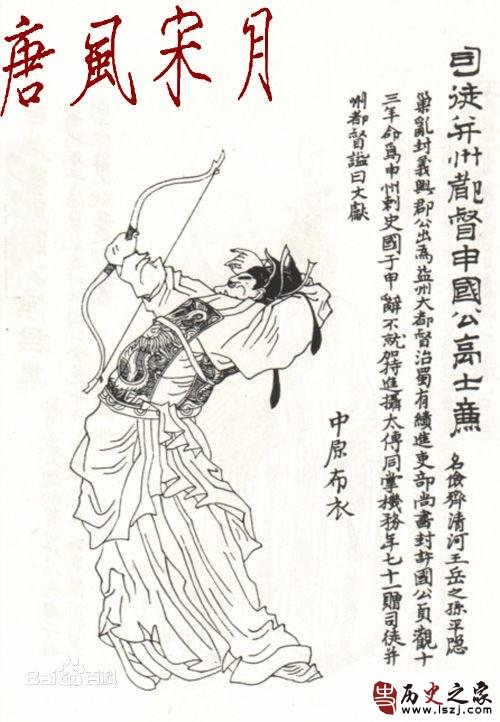 唐風宋月
司徒并州都督申國公高士廉
名儉齊清河王岳之孫平隐
巢亂封義興郡公出為益州大都督治蜀有績進吏部尚書封許國公貞觀十
三年命爲申州刺史國于申辭不就加特進攝太傅同掌機務年七十一贈司徒并
州都督謚曰文獻
中原布衣
Bai百科
历史之家
www.lszj.com